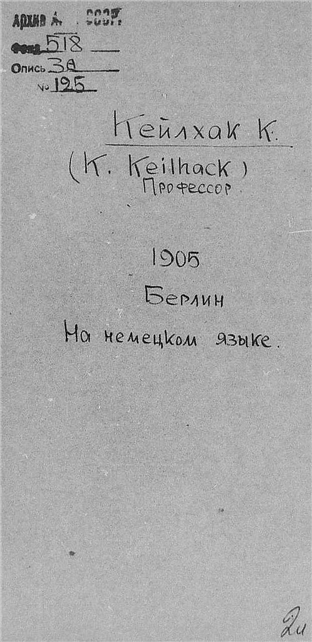 Архив А. СССР
Фонд 518
Опись 3а
№ 125
Кейлхак К.
(K. Keilhack)
Профессор.
1905
Берлин
На немецком языке.
2л